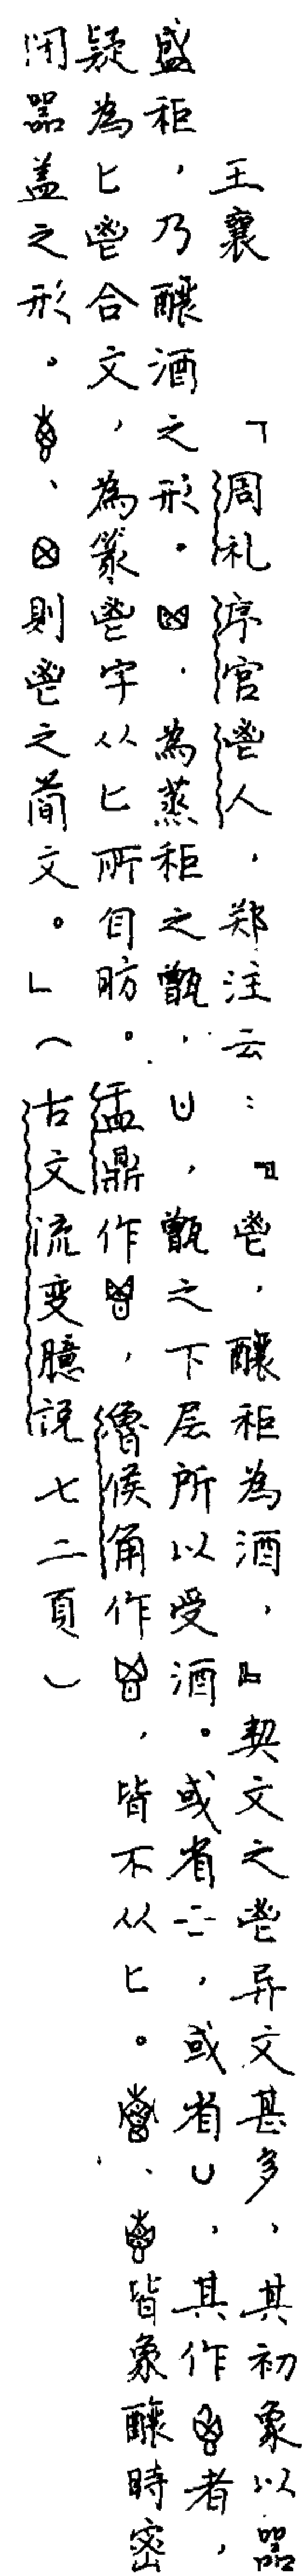 王襄　「周礼序官鬯人，郑注云：『鬯，釀秬為酒，』契文之鬯异文甚多，其初象以器
盛秬，乃釀酒之形。，為蒸秬之甑，凵，甑之下层所以受酒。或省二，或省凵，其作者，
疑為匕鬯合文，為篆鬯字从匕所自昉。盂鼎作，魯侯角作，皆不从匕。、皆象釀時密
闭器盖之形。、則鬯之简文。」（古文流变臆說七二頁）